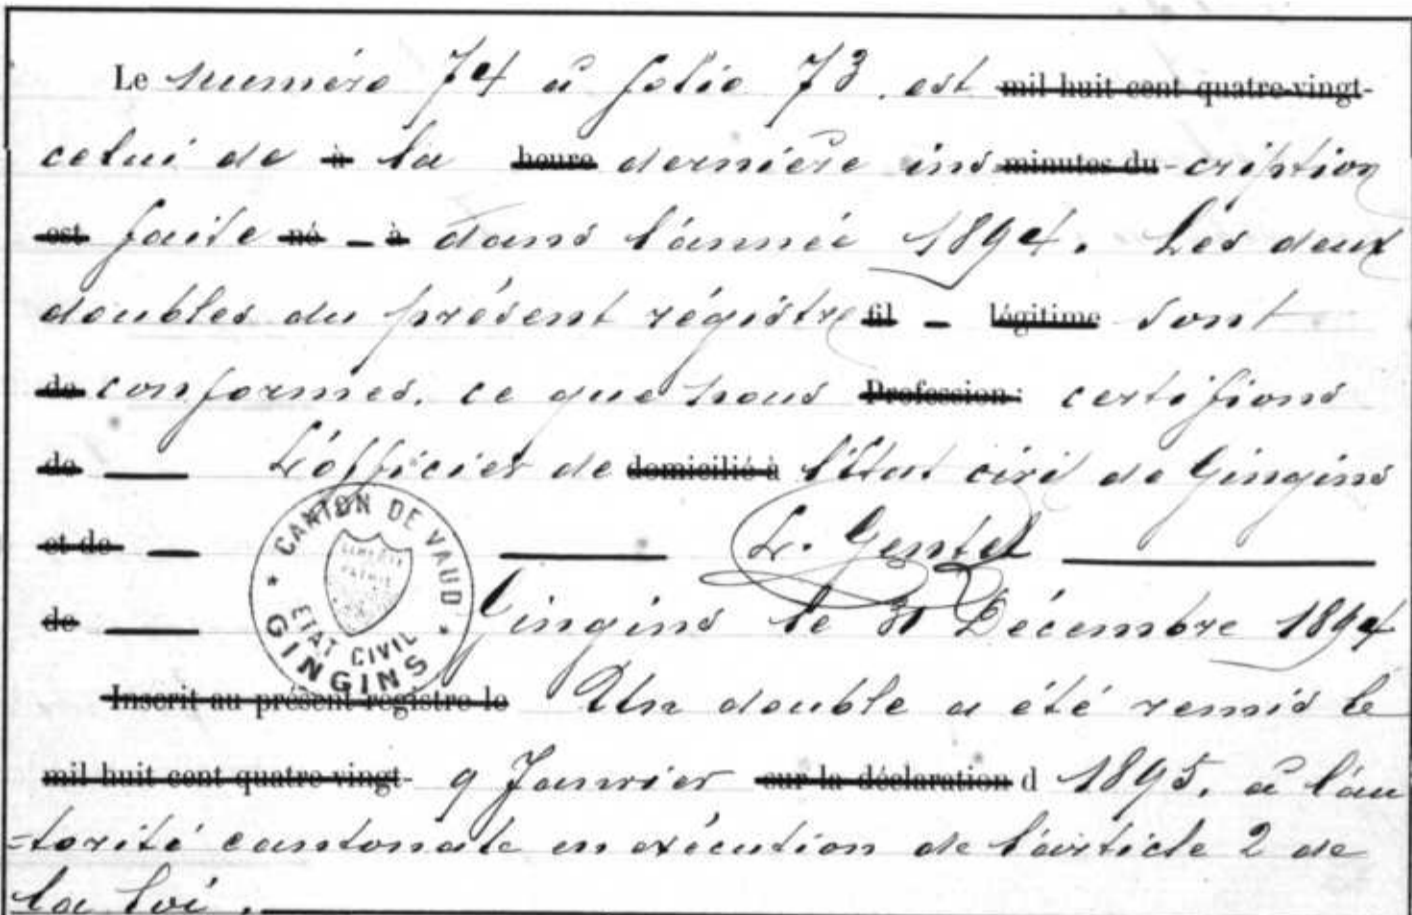 Le numéro 74 à folio 73. est mil huit cent quatre-vingt-
celui de à la heure dernière ins minutes du -cription
est faite né - à dans l'année 1894. Les deux
doubles du présent régistre fil - légitime sont
de conformes. ce que nous Profession: certifions
de L'officier de domicilié à l'Etat civil de Gingins
et de L. Gentet
de Gingins le 31 Décembre 1894
CANTON DE VAUD
LIBERTÉ
PATRIE
ETAT CIVIL
GINGINS
Inscrit au présent registre le Un double a été remis le
mil huit cent quatre-vingt- 9 Janvier sur la déclaration d 1895. à l'au
-torité cantonale en exécution de l'article 2 de
la loi.